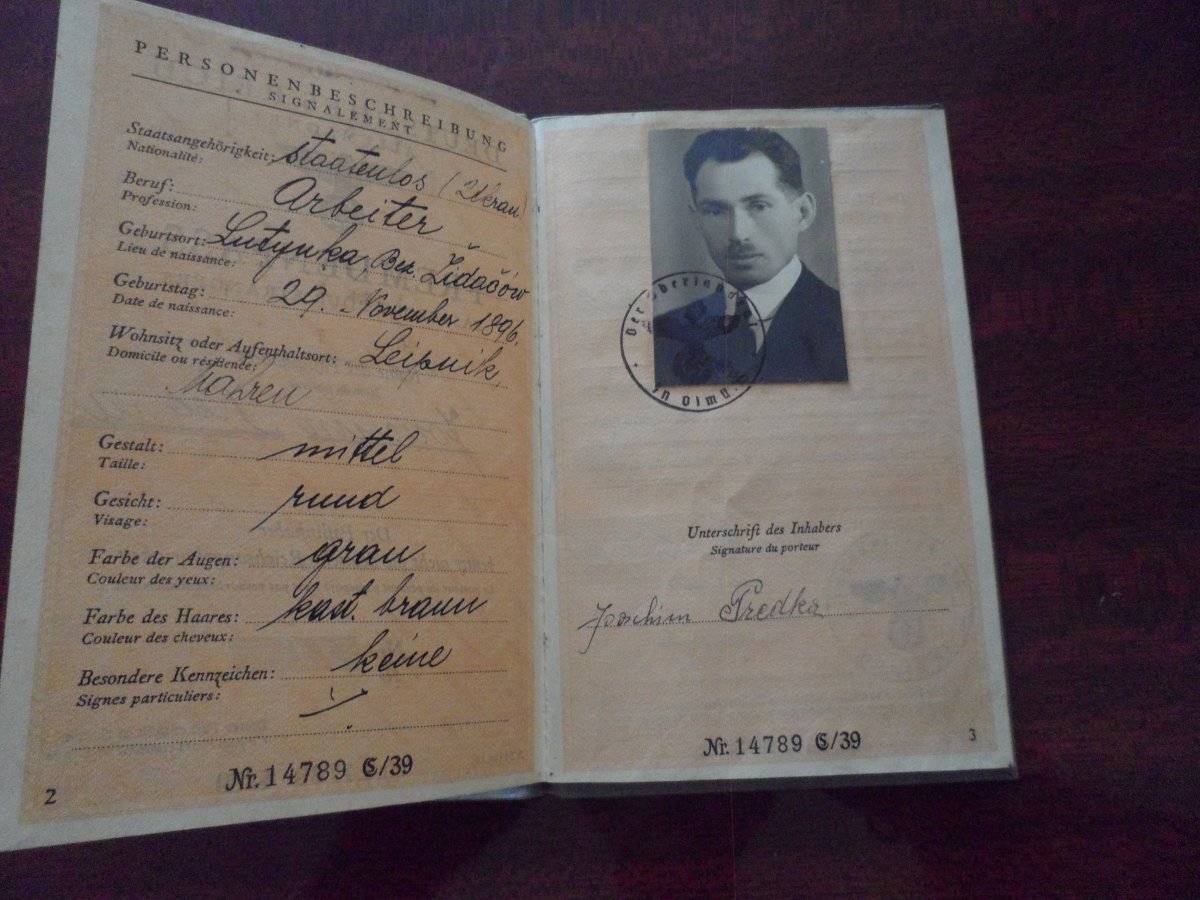 PERSONENBESCHREIBUNG
SIGNALEMENT
Staatsangehörigkeit: staatenlos (Ukran)
Nationalité:
Beruf: Arbeiter
Profession:
Geburtsort: Lutynka, Bez. Zidačów
Lieu de naissance:
Geburtstag: 29. November 1896.
Date de naissance:
Wohnsitz oder Aufenthaltsort: Leipnik,
Domicile ou résidence:
Mähren
Gestalt: mittel
Taille:
Gesicht: rund
Visage:
Farbe der Augen: grau
Couleur des yeux:
Farbe des Haares: kast. braun
Couleur des cheveux:
Besondere Kennzeichen: keine
Signes particuliers:
Nr. 14789 C/39
2
Der Oberland
in Olmü
Unterschrift des Inhabers
Signature du porteur
Joachim Predka
Nr. 14789 C/39
3